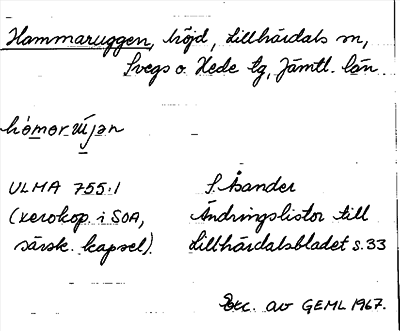 Hammaruggen, höjd, Lillhärdals sn,
Svegs o. Hede tg, Jämtl. län.
ULMA 755:1
(xerokop. i SOA,
särsk. kapsel).
S Åsander
Ändringslistor till
Lillhärdalsbladet s. 33
Exc. av GEML 1967.